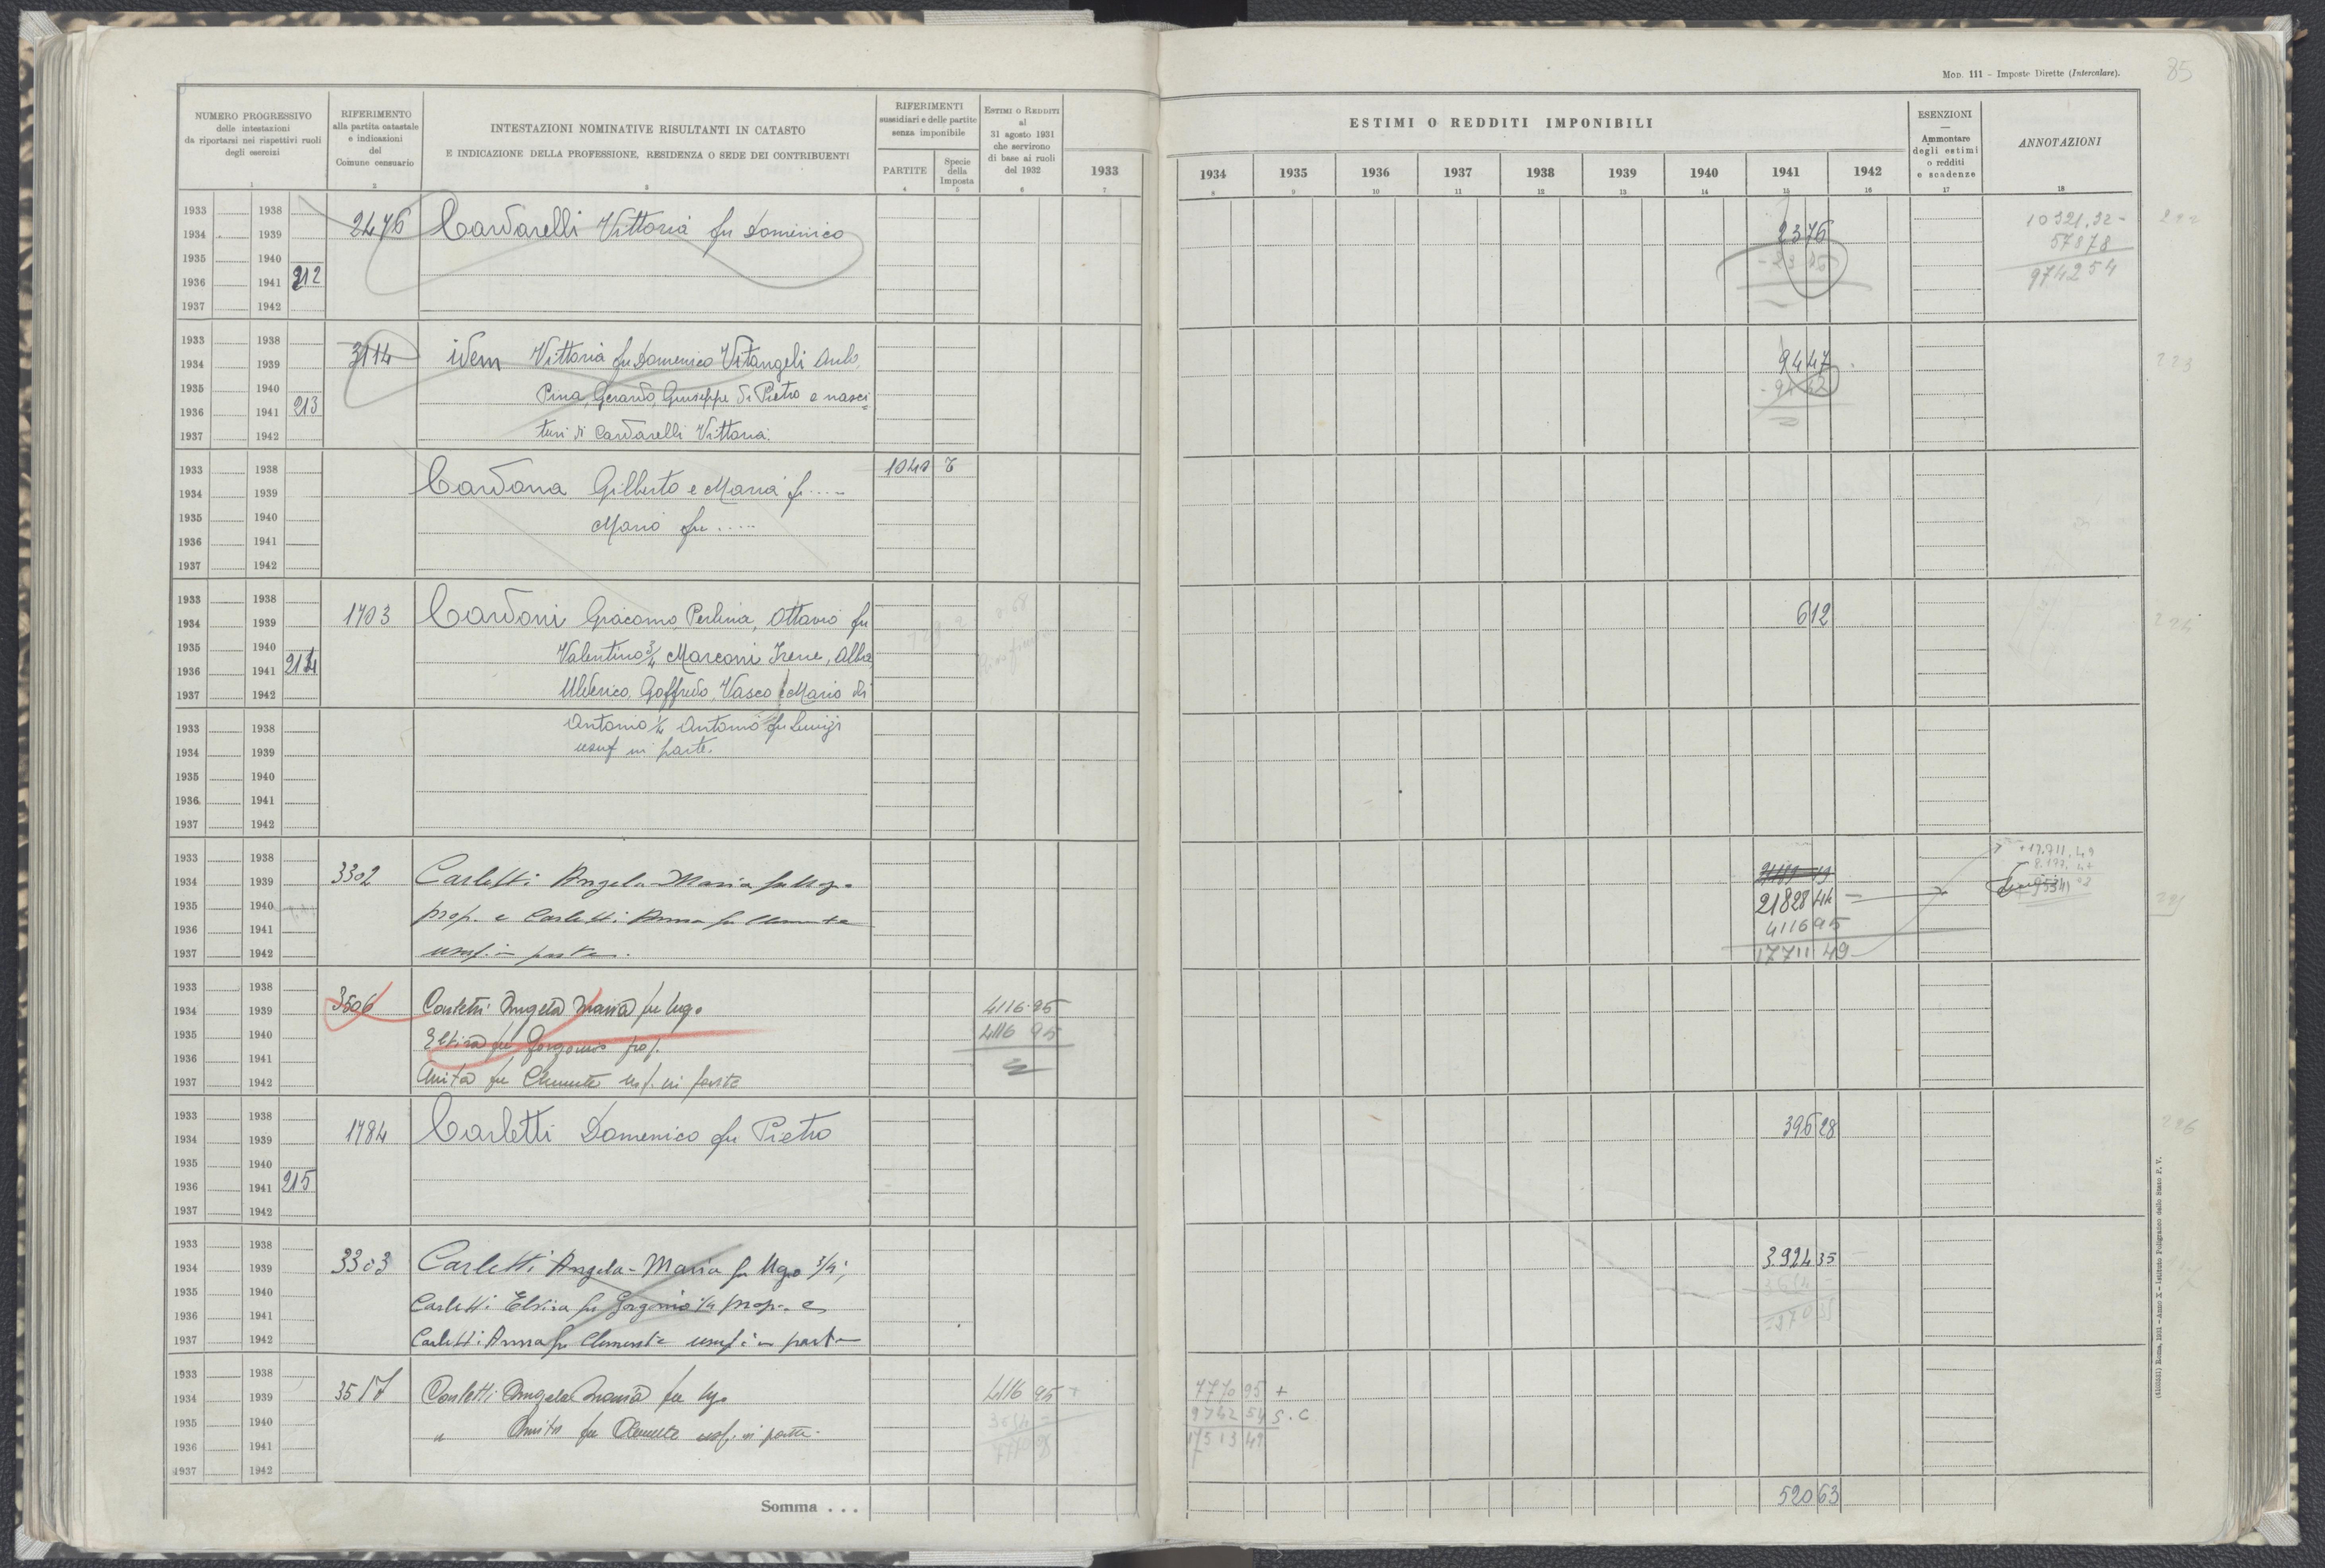 Mod. 111 - Imposte Dirette (Intercalare).
85
NUMERO PROGRESSIVO
delle intestazioni
da riportarsi nei rispettivi ruoli
degli esercizi
1
RIFERIMENTO
alla partita catastale
e indicazioni
del
Comune censuario
2
INTESTAZIONI NOMINATIVE RISULTANTI IN CATASTO
E INDICAZIONE DELLA PROFESSIONE, RESIDENZA O SEDE DEI CONTRIBUENTI
3
RIFERIMENTI
sussidiari e delle partite
senza imponibile
PARTITE
4
Specie
della
Imposta
5
Estimi o Redditi
al
31 agosto 1931
che servirono
di base ai ruoli
del 1932
6
1933
7
ESTIMI O REDDITI IMPONIBILI
1934 1935 1936 1937 1938 1939 1940 1941 1942
8 9 10 11 12 13 14 15 16
ESENZIONI
Ammontare
degli estimi
o redditi
e scadenze
17
ANNOTAZIONI
18
1933 1938
1934 1939 2476 Cardarelli Vittoria fu Domenico 2376
1935 1940
1936 1941 212
1937 1942
10321,32-
578 78
9742 54
1933 1938
1934 1939 3114 idem Vittoria fu Domenico Vitangeli 9447
1935 1940 Pina, Gerardo, Giuseppe di Pietro e nasci=
1936 1941 213
1937 1942 turi di Cardarelli Vittoria.
223
1933 1938 1040
1934 1939 Cardona Gilberto e Maria f.....
1935 1940 Mario fu .....
1936 1941
1937 1942
1933 1938
1934 1939 1703 Cardoni Giacomo, Perlina, Ottavio fu 612
1935 1940 Valentino 3/4 Marconi Irene, Alba,
1936 1941 214
1937 1942 Ulderico, Goffredo, Vasco e Mario di
1933 1938 Antonio 1/4 Antonio fu Luigi
1934 1939 usuf in parte.
1935 1940
1936 1941
1937 1942
1933 1938
1934 1939 3302 Carletti Angela-Maria fu Ugo
1935 1940 prop. e Carletti Anna fu Clemente 21828 44
1936 1941 4116 95
1937 1942 usuf. in parte. 17711 49
+17.711,49
1933 1938
1934 1939 3506 Carletti Angela Maria fu Ugo 4116.95
1935 1940 Elvira fu Gorgonio prop. 4116 95
1936 1941
1937 1942 Anita fu Clemente usf. in parte
1933 1938
1934 1939 1784 Carletti Domenico fu Pietro 396 28
1935 1940
1936 1941 215
1937 1942
226
1933 1938
1934 1939 3303 Carletti Angela-Maria fu Ugo 3/4; 3.924 35
1935 1940 Carletti Elvira fu Gorgonio 1/4 prop. e
1936 1941
1937 1942 Carletti Anna fu Clemente usuf. in parte
1933 1938
1934 1939 3517 Carletti Angela Maria fu Ugo 4116 95 + 7770 95 +
1935 1940 " Anita fu Clemente usf. in parte. 9742 54 S.C
1936 1941 17513 49
1937 1942
Somma . . . 520 63
(4160531) Roma, 1931 - Anno X - Istituto Poligrafico dello Stato P. V.